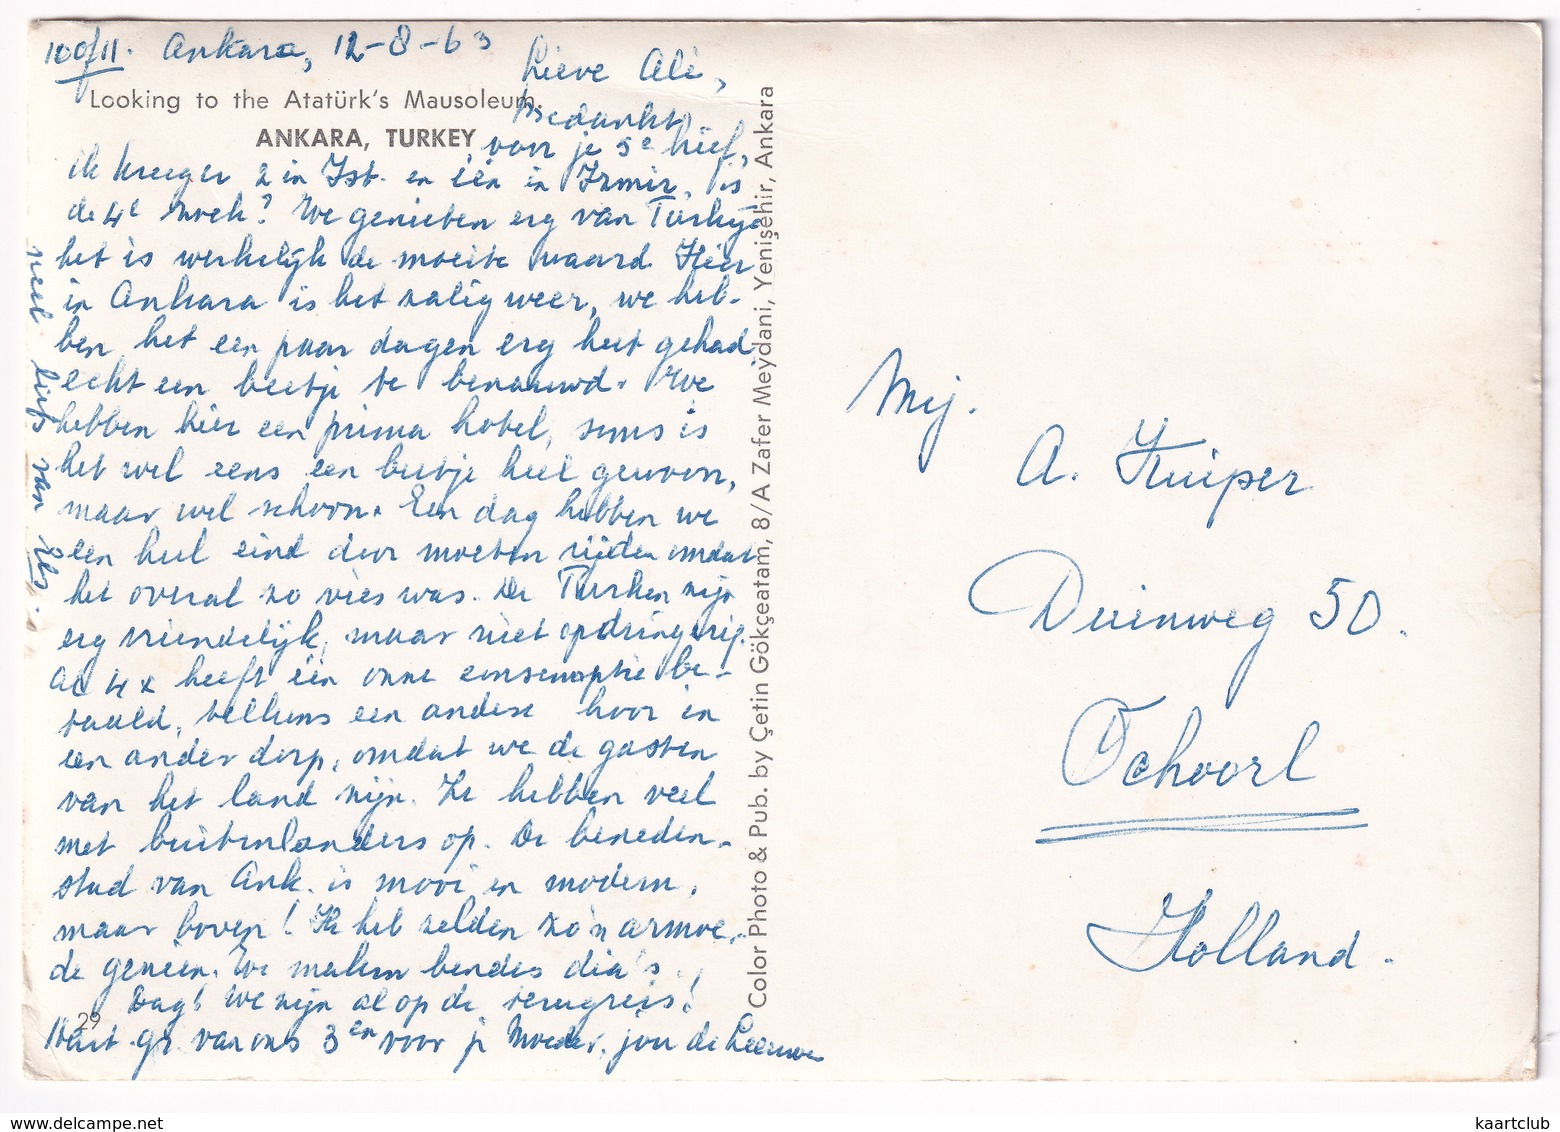 Ankara, 12-8-63
Lieve Ali,
Looking to the Atatürk's Mausoleum.
ANKARA, TURKEY
Bedankt
voor je 5e brief,
ik kreeg er 2 in Ist. en één in Izmir, is
de 4e zoek? We genieten erg van Turkije
het is werkelijk de moeite waard. Hier
in Ankara is het zalig weer, we heb-
ben het een paar dagen erg heet gehad
echt een beetje te benauwd. We
hebben hier een prima hotel, soms is
het wel eens een beetje heel gewoon,
maar wel schoon. Een dag hebben we
een heel eind door moeten rijden omdat
het overal zo vies was. De Turken zijn
erg vriendelijk, maar niet opdringerig.
Al 4x heeft één onze consumptie be-
taald, telkens een andere hoor in
een ander dorp, omdat we de gasten
van het land zijn. Ze hebben veel
met buitenlanders op. De beneden-
stad van Ank. is mooi en modern,
maar boven! Ik heb zelden zo'n armoe-
de gezien. We maken bendes dia's.
Dag! We zijn al op de terugreis!
Hart. gr. van ons 3en voor je Moeder, jou de Leeuw
29
veel liefs van Els.
Color Photo & Pub. by Çetin Gökçeatam, 8/A Zafer Meydani, Yenişehir, Ankara
Mej.
A. Kuiper
Duinweg 50.
Schoorl
Holland.
kaartclub